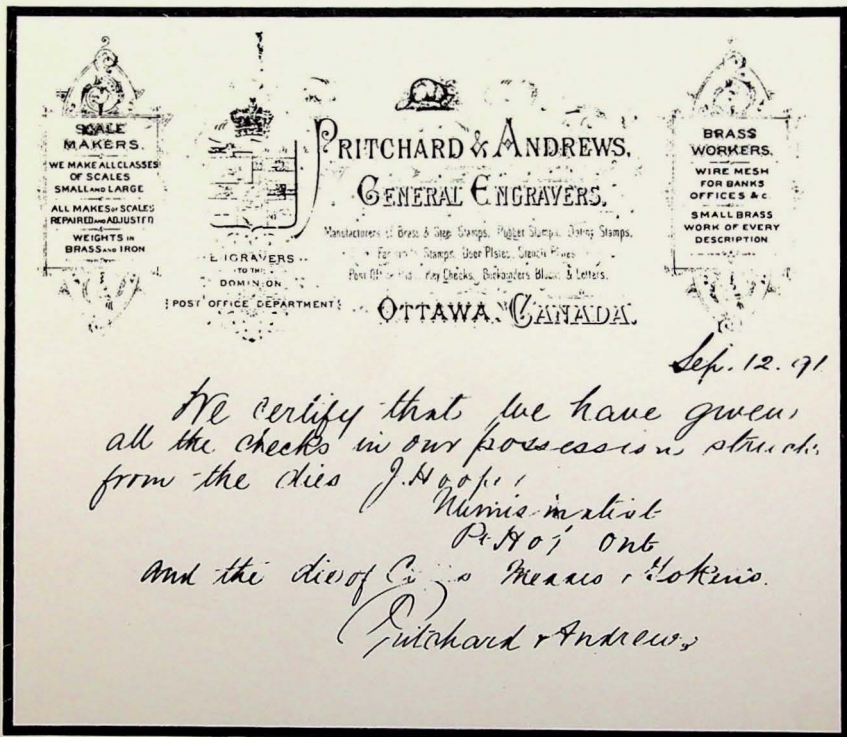 SCALE
MAKERS.
WE MAKE ALL CLASSES
OF SCALES
SMALL AND LARGE
ALL MAKES OF SCALES
REPAIRED AND ADJUSTED
WEIGHTS IN
BRASS AND IRON
ENGRAVERS
TO THE
DOMINION
POST OFFICE DEPARTMENT
PRITCHARD & ANDREWS,
GENERAL ENGRAVERS.
Manufacturers of Brass & Steel Stamps, Rubber Stamps, Dating Stamps,
Stamps, Door Plates, Stencil Plates
Post Office Key Checks, Bookbinders Blocks & Letters.
OTTAWA, CANADA.
BRASS
WORKERS.
WIRE MESH
FOR BANKS
OFFICES & C.
SMALL BRASS
WORK OF EVERY
DESCRIPTION
Sep. 12. 91
We certify that we have given
all the checks in our possession struck
from the dies J. Hooper
Numismatist
Ont
and the die of
Pritchard & Andrews